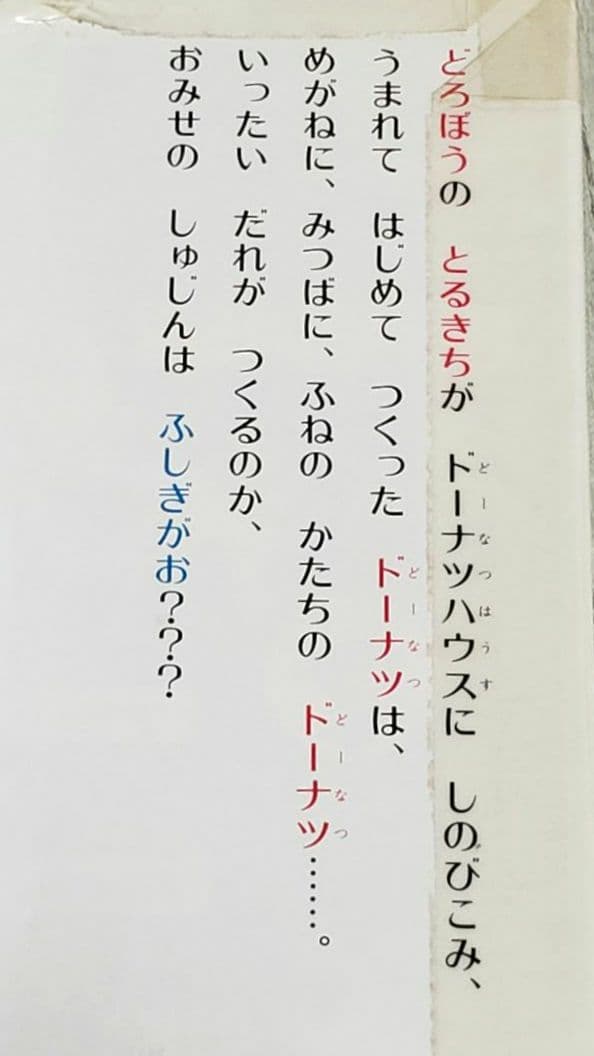 どろぼうの　とるきちが　ドーナツハウスに　しのびこみ、
どーなつはうす
うまれて　はじめて　つくった　ドーナツは、
どーなつ
めがねに、みつばに、ふねの　かたちの　ドーナツ……。
どーなつ
いったい　だれが　つくるのか、
おみせの　しゅじんは　ふしぎがお？？？